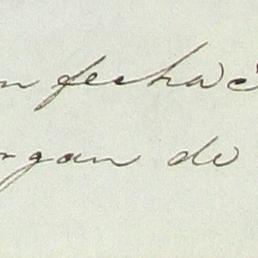 n fecha
rgan de